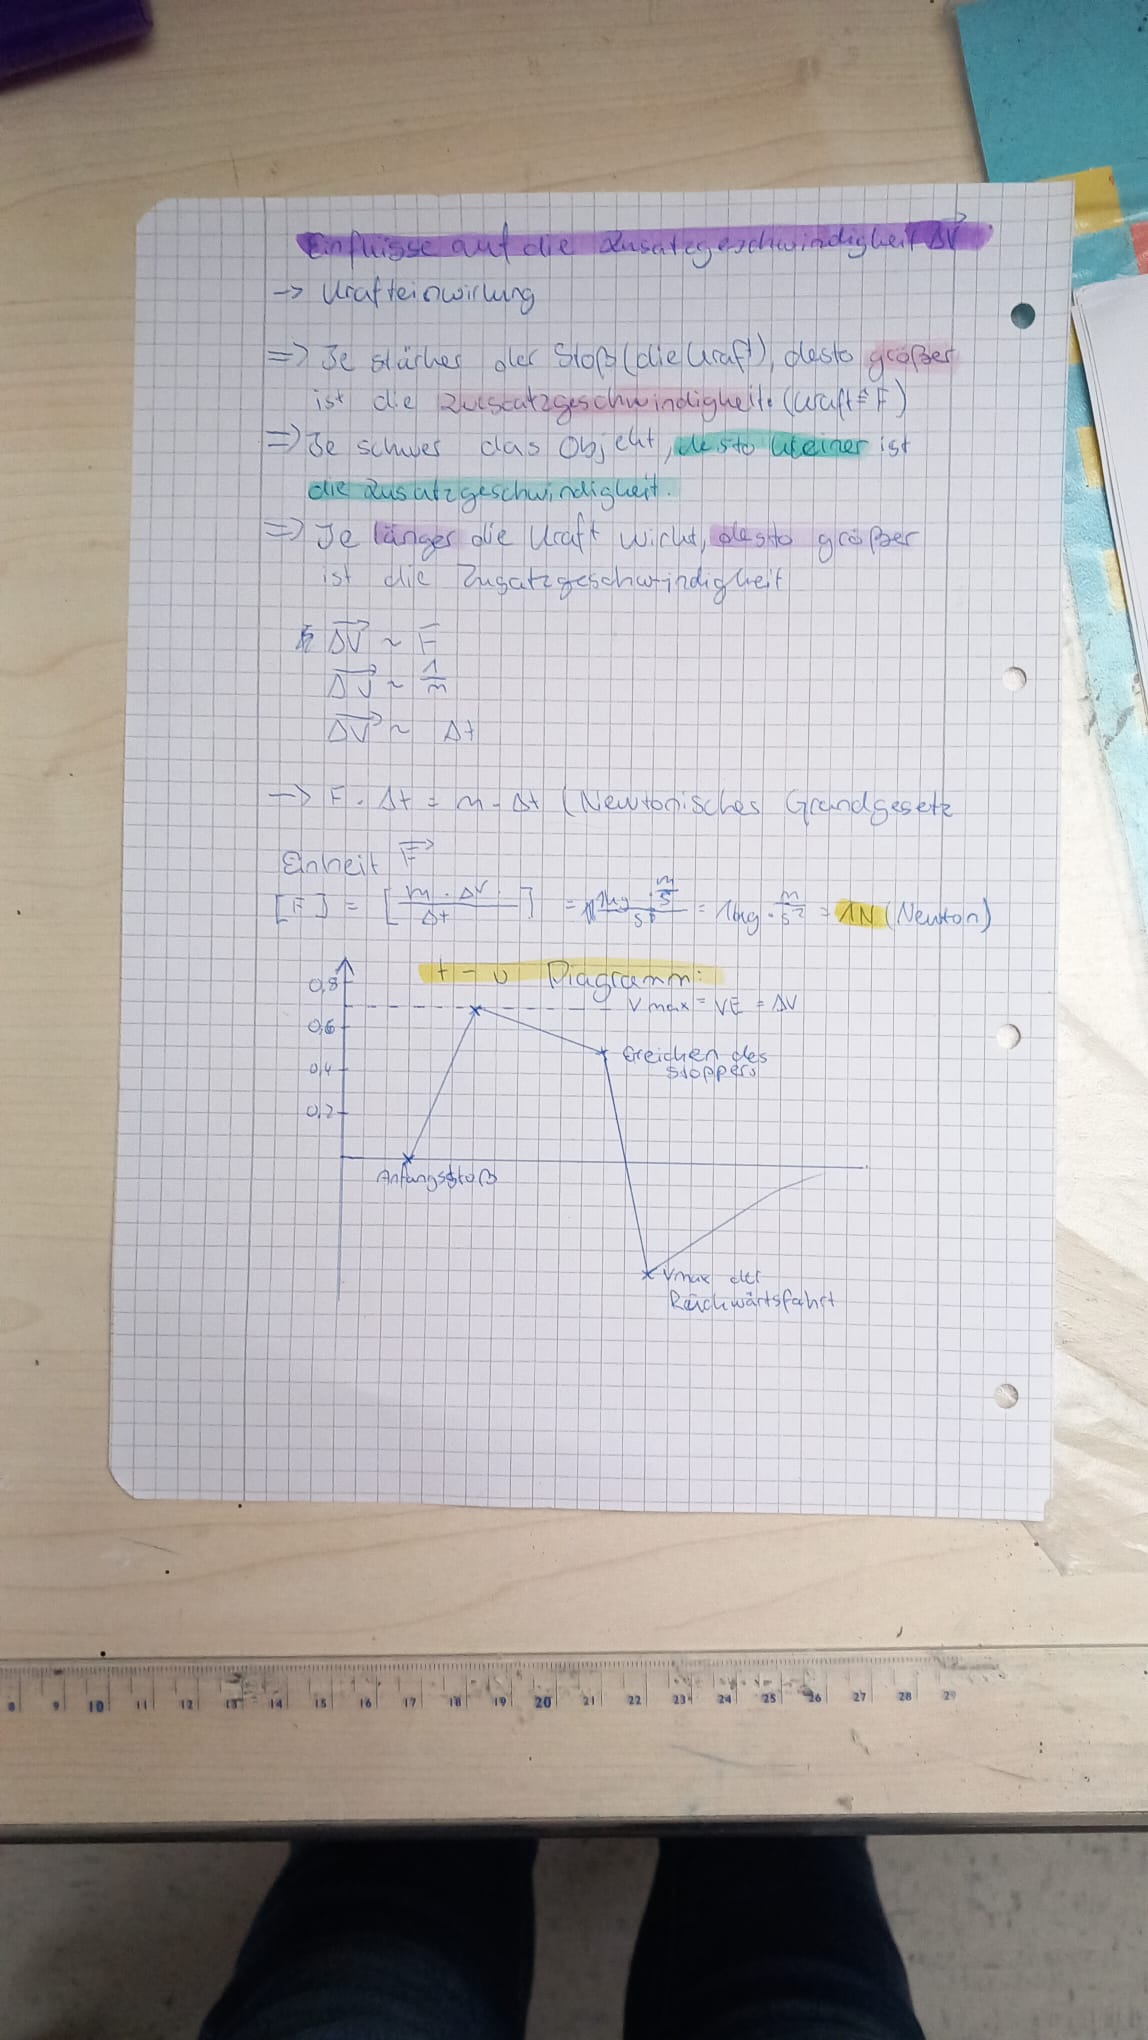 Einflüsse auf die Zusatzgeschwindigkeit Δv
→ Krafteinwirkung
=> Je stärker der Stoß (die Kraft), desto größer
ist die Zusatzgeschwindigkeit. (Kraft ≙ F)
=> Je schwer das Objekt, desto kleiner ist
die Zusatzgeschwindigkeit.
=> Je länger die Kraft wirkt, desto größer
ist die Zusatzgeschwindigkeit
Δv ~ F
Δv ~ 1/m
Δv ~ Δt
→ F · Δt = m · Δt (Newtonisches Grundgesetz
Einheit F
[F] = [m · Δv / Δt] = 1kg · m/s / s = 1kg · m/s² = 1N (Newton)
t - v Diagramm:
0,8
Vmax = VE = ΔV
0,6
Erreichen des
Stoppers
0,4
0,2
Anfangsstoß
Vmax der
Rückwärtsfahrt
8 9 10 11 12 13 14 15 16 17 18 19 20 21 22 23 24 25 26 27 28 29